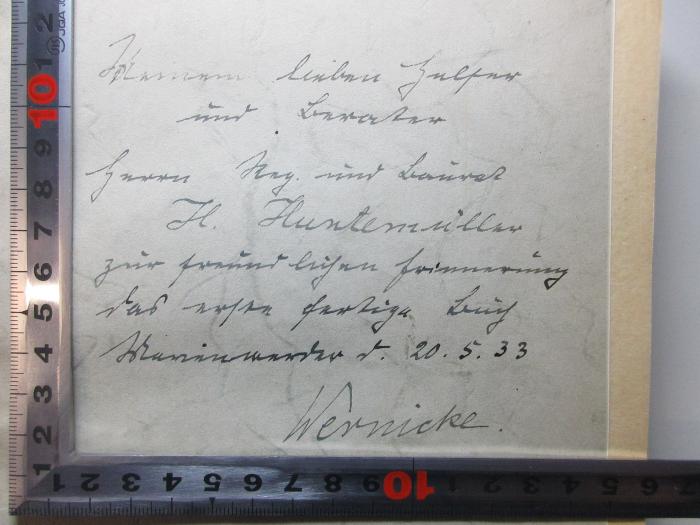 Meinem lieben Helfer
und Berater
Herrn Reg. und Baurat
H. Huntemüller
zur freundlichen Erinnerung
das erste fertige Buch
Marienwerder d. 20.5.33
Wernicke.